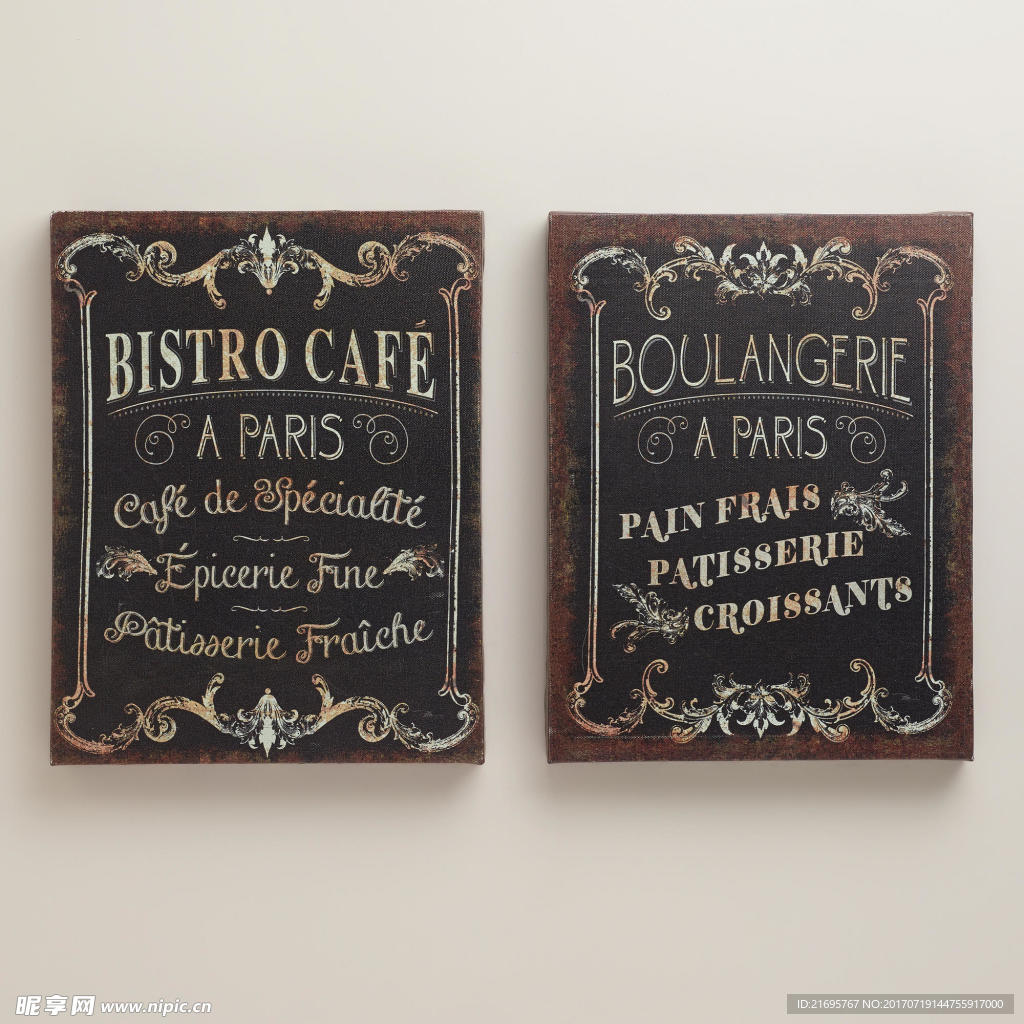 BISTRO CAFÉ
A PARIS
Café de Spécialité
Épicerie Fine
Pâtisserie Fraîche
BOULANGERIE
A PARIS
PAIN FRAIS
PATISSERIE
CROISSANTS
昵享网 www.nipic.cn
ID:21695767 NO:20170719144755917000